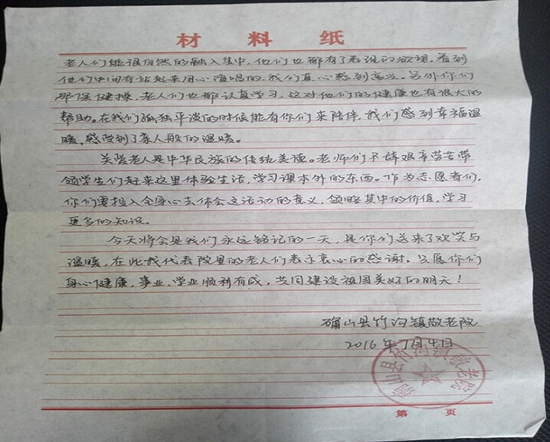 材料纸
老人们能很自然的融入其中,他们也都有了表现的欲望,看到
他们中间有站起来用心演唱的,我们真心感到高兴。另外你们
那保健操,老人们也都认真学习,这对他们的健康也有很大的
帮助。在我们孤独平淡的时候能有你们来陪伴,我们感到幸福温
暖,感受到了亲人般的温暖。
关爱老人是中华民族的传统美德。老师们不辞艰辛劳苦带
领学生们赶来这里体验生活,学习课本外的东西。作为志愿者们,
你们要投入全身心去体会这活动的意义,领略其中的价值,学习
更多的知识。
今天将会是我们永远铭记的一天,是你们送来了欢笑与
温暖,在此我代表院里的老人们表示衷心的感谢。只愿你们
身心健康,事业、学业顺利有成,共同建设祖国美好的明天!
确山县竹沟镇敬老院
2016年7月4日
确山县竹沟镇敬老院
第 页